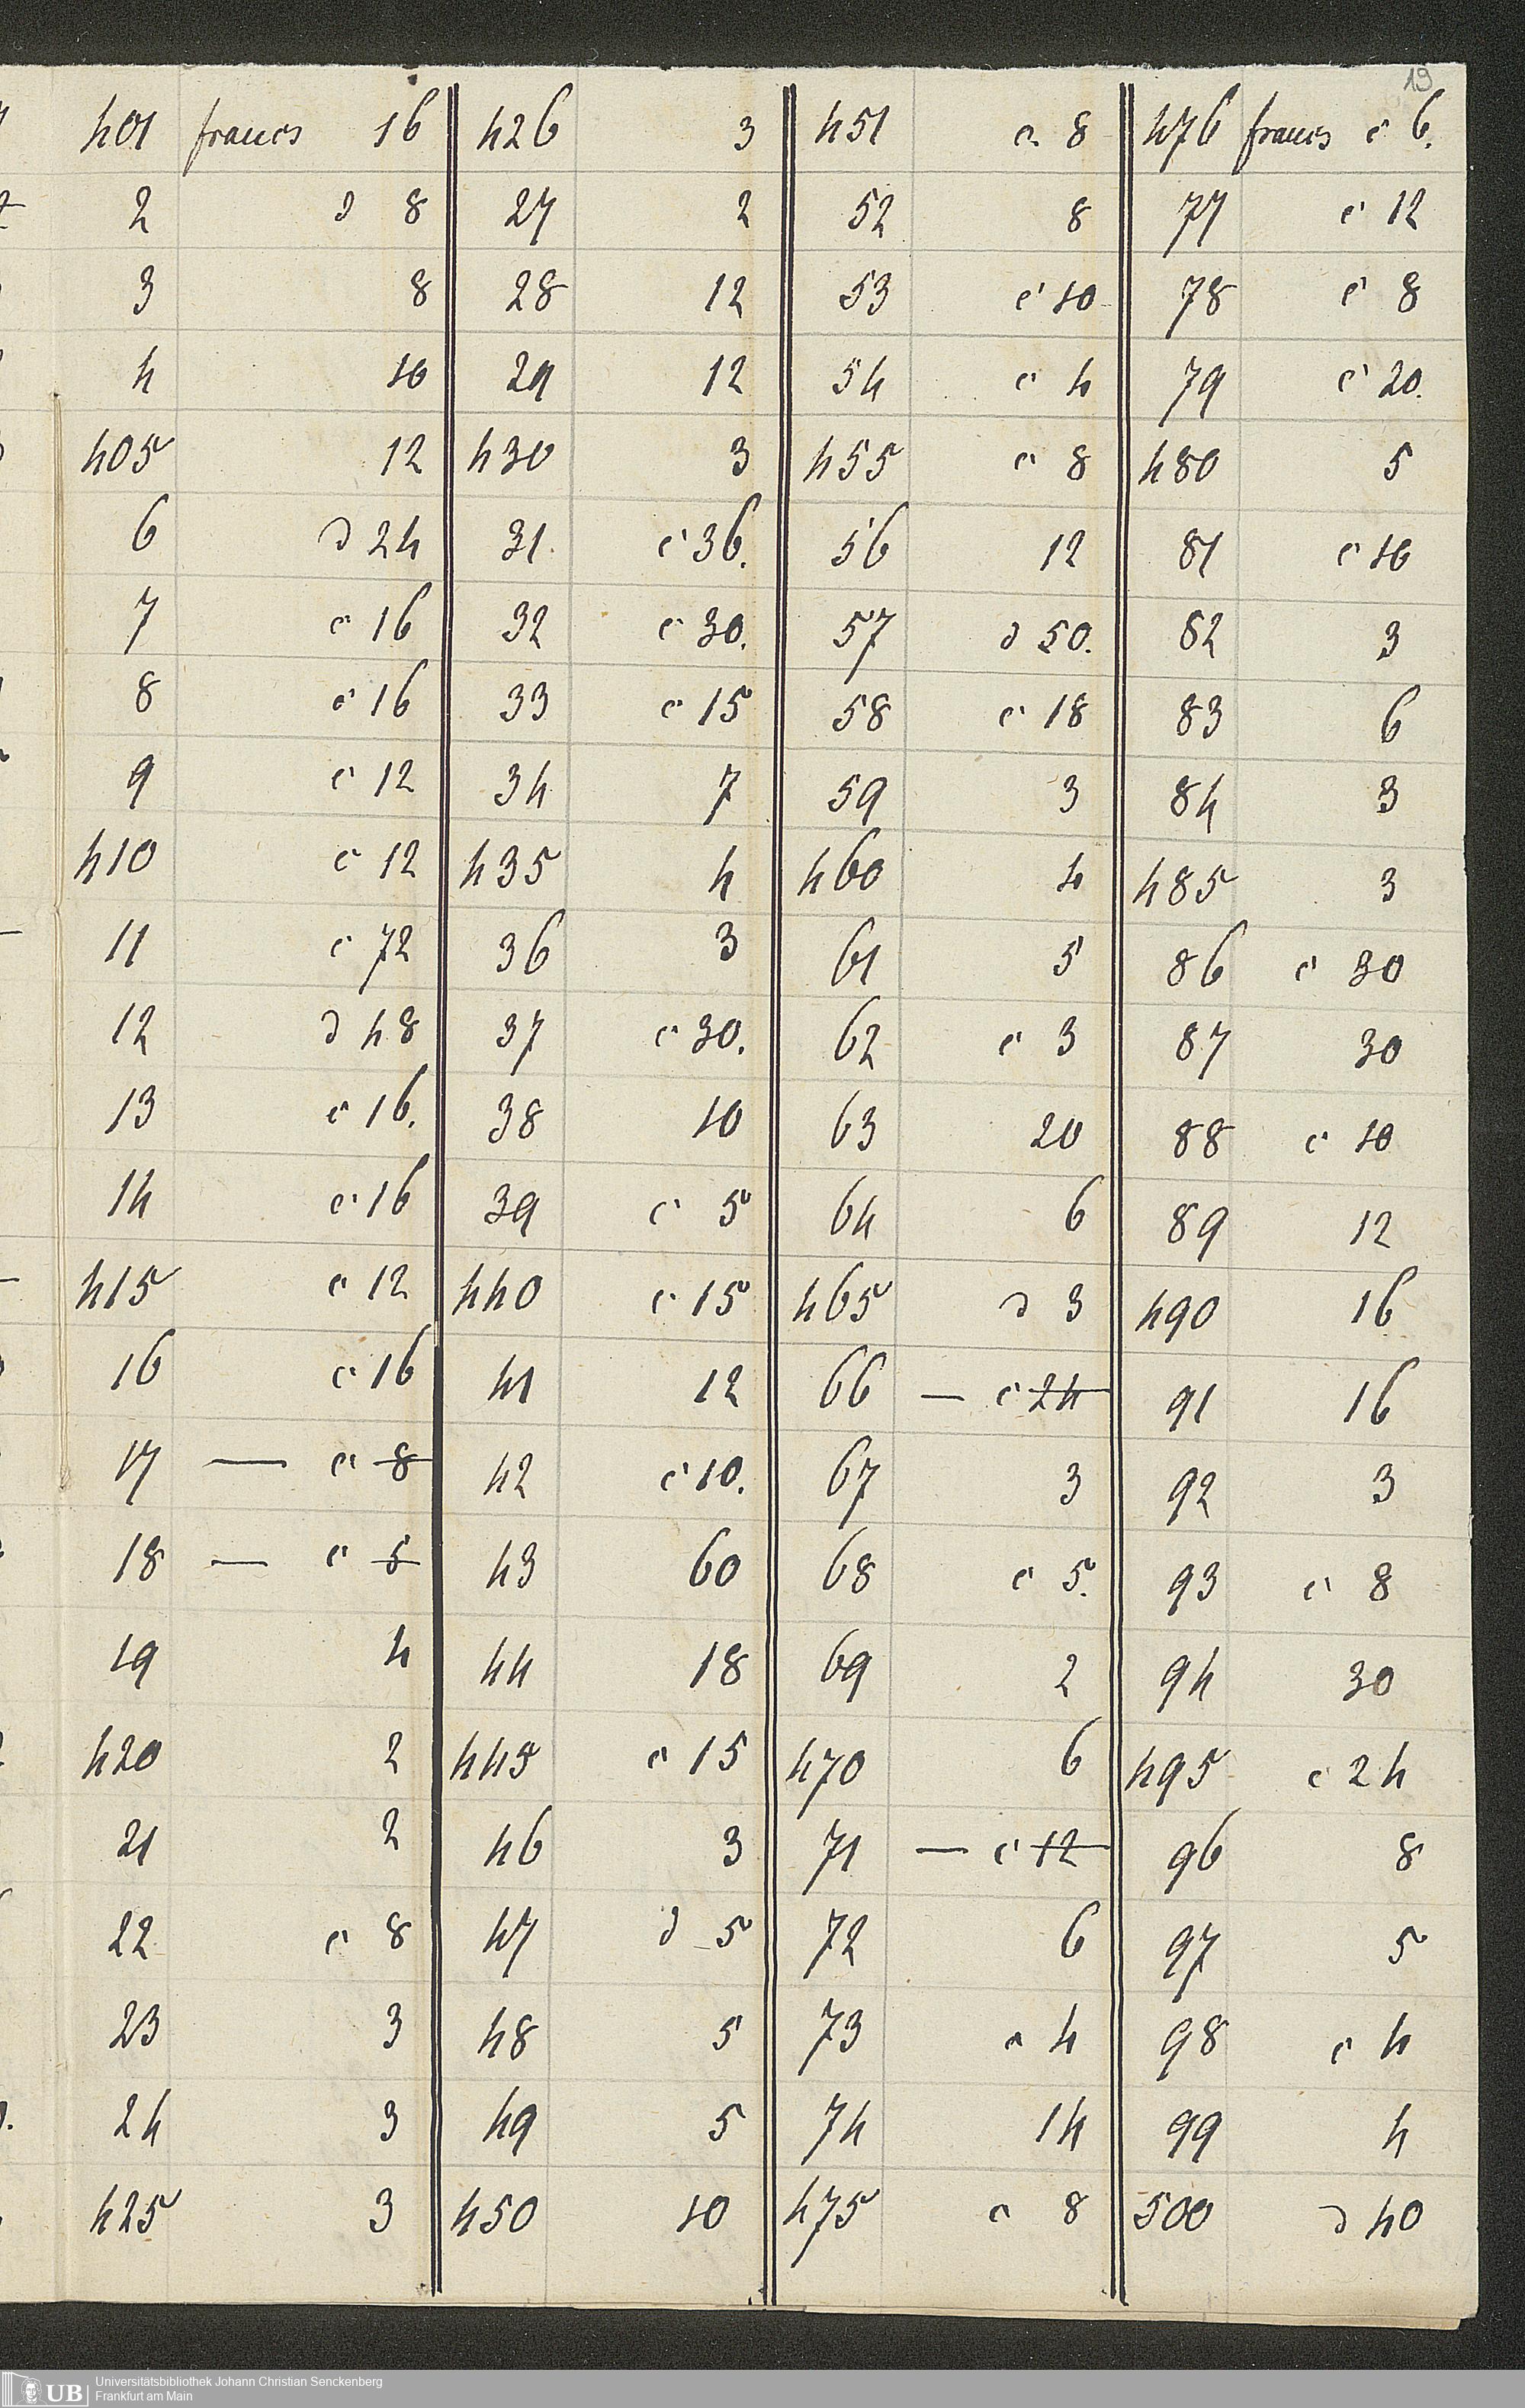 19
401 francs 16 426 3 451 c 8 476 francs c 6.
2 d 8 27 2 52 8 77 c 12
3 8 28 12 53 c 10 78 c 8
4 10 29 12 54 c 4 79 c 20.
405 12 430 3 455 c 8 480 5
6 d 24 31. c 36. 56 12 81 c 10
7 c 16 32 c 30. 57 d 50. 82 3
8 c 16 33 c 15 58 c 18 83 6
9 c 12 34 7 59 3 84 3
410 c 12 435 4 460 4 485 3
11 c 72 36 3 61 5 86 c 30
12 d 48 37 c 30. 62 c 3 87 30
13 c 16. 38 10 63 20 88 c 10
14 c 16 39 c 5 64 6 89 12
415 c 12 440 c 15 465 d 3 490 16
16 c 16 41 12 66 — c 24 91 16
17 — c 8 42 c 10. 67 3 92 3
18 — c 5 43 60 68 c 5. 93 c 8
19 4 44 18 69 2 94 30
420 2 445 c 15 470 6 495 c 24
21 2 46 3 71 — c 12 96 8
22 c 8 47 d 5 72 6 97 5
23 3 48 5 73 c 4 98 c 4
24 3 49 5 74 14 99 4
425 3 450 10 475 c 8 500 d 40
UB
Universitätsbibliothek Johann Christian Senckenberg
Frankfurt am Main